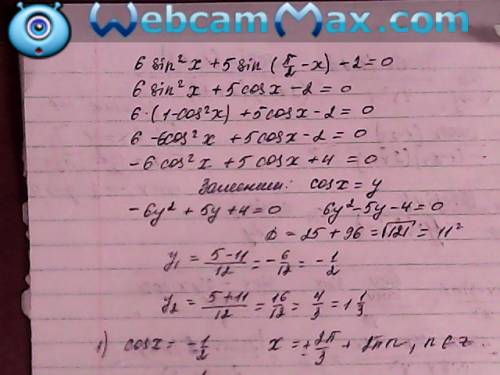 WebcamMax.com
6 sin²x + 5 sin (π/2 - x) - 2 = 0
6 sin²x + 5 cosx - 2 = 0
6·(1-cos²x) + 5cosx - 2 = 0
6 -6cos²x + 5cosx - 2 = 0
-6cos²x + 5cosx + 4 = 0
Заменим: cosx = y
-6y² + 5y + 4 = 0 6y² - 5y - 4 = 0
D = 25 + 96 = √121 = 11²
y₁ = 5-11/12 = -6/12 = -1/2
y₂ = 5+11/12 = 16/12 = 4/3 = 1 1/3
1) cosx = -1/2 x = ±2π/3 + 2πn, n∈z.